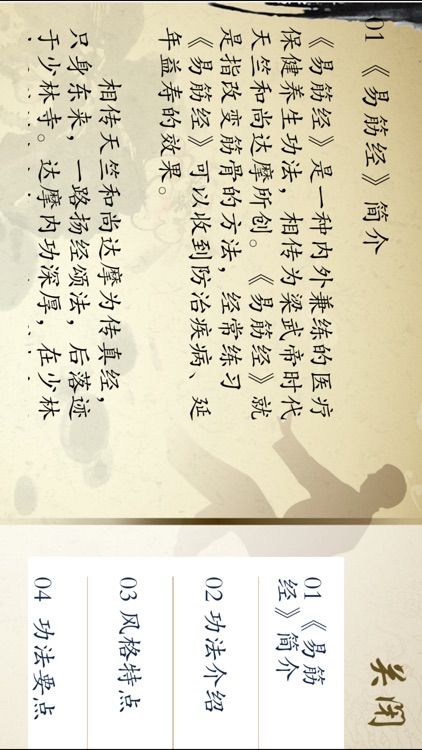 01 《易筋经》简介
《易筋经》是一种内外兼练的医疗
保健养生功法，相传为梁武帝时代
天竺和尚达摩所创。《易筋经》就
是指改变筋骨的方法，经常练习
《易筋经》可以收到防治疾病、延
年益寿的效果。
相传天竺和尚达摩为传真经，
只身东来，一路扬经颂法，后落迹
于少林寺。达摩内功深厚，在少林
关闭
01 《易筋
经》简介
02 功法介绍
03 风格特点
04 功法要点